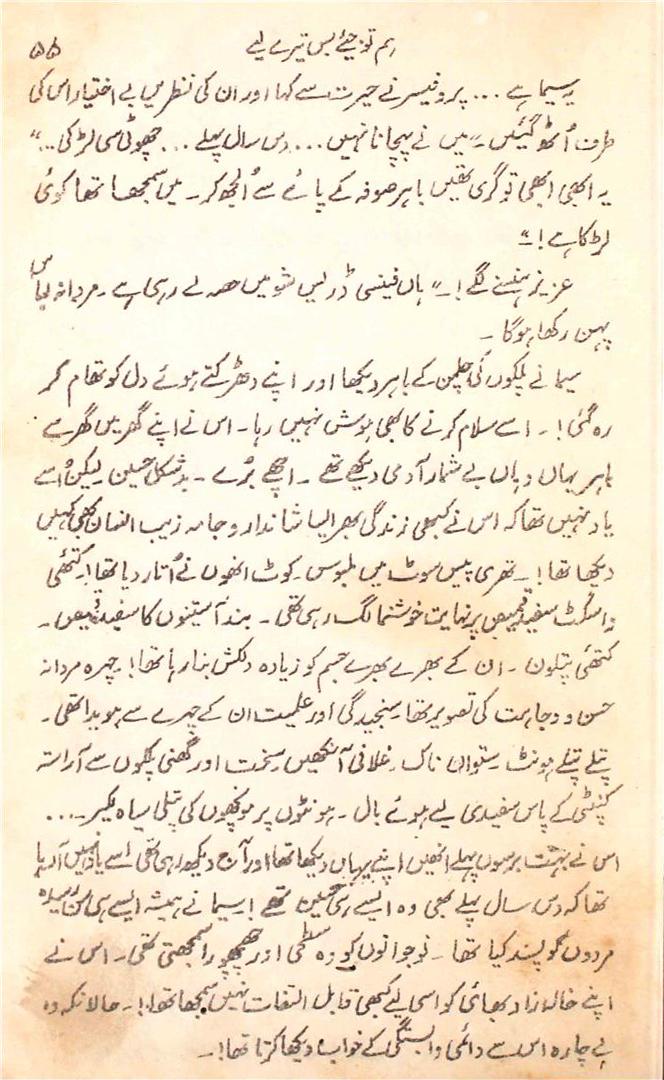 ہم تو جئے بس تیرے لیے
۵۵
یہ سیما ہے ... پروفیسر نے حیرت سے کہا اور ان کی نظریں بے اختیار اس کی
طرف اُٹھ گئیں۔ "میں نے پہچانا نہیں ... دس سال پہلے ... چھوٹی سی لڑکی .."
یہ ابھی ابھی تو گری تھیں باہر صوفہ کے پائے سے اُلجھ کر۔ میں سمجھا تھا کوئی
لڑکا ہے!"
عزیز ہنسنے لگے!۔ "ہاں فینسی ڈریس شو میں حصہ لے رہی ہے۔ مردانہ لباس
پہن رکھا ہوگا۔
سیما نے پلکوں کی چلمن کے باہر دیکھا اور اپنے دھڑکتے ہوئے دل کو تھام کر
رہ گئی!۔ اسے سلام کرنے کا بھی ہوش نہیں رہا۔ اس نے اپنے گھر میں گھر سے
باہر یہاں وہاں بے شمار آدمی دیکھے تھے۔ اچھے بُرے۔ بدشکل حسین لیکن اُسے
یاد نہیں تھا کہ اس نے کبھی زندگی بھر ایسا شاندار و جامہ زیب انسان بھی کہیں
دیکھا تھا!۔ تھری پیس سوٹ میں ملبوس۔ کوٹ انھوں نے اُتار دیا تھا! کتھئی
واسکٹ سفید قمیص پر نہایت خوشنما لگ رہی تھی۔ بند آستینوں کا سفید قمیص۔
کتھئی پتلون۔ ان کے بھرے بھرے جسم کو زیادہ دلکش بنا رہا تھا!۔ چہرہ مردانہ
حسن و وجاہت کی تصویر تھا۔ سنجیدگی اور علمیت ان کے چہرے سے ہویدا تھی۔
پتلے پتلے ہونٹ۔ ستواں ناک۔ غلافی آنکھیں۔ سخت اور گھنی پلکوں سے آراستہ
کنپٹی کے پاس سفیدی لیے ہوئے بال۔ ہونٹوں پر مونچھوں کی پتلی سیاہ لکیر۔...
اس نے بہت برسوں پہلے انھیں اپنے یہاں دیکھا تھا اور آج دیکھ رہی تھی اسے یاد نہیں آرہا
تھا کہ دس سال پہلے بھی وہ ایسے ہی حسین تھے! سیما نے ہمیشہ ایسے ہی سن رسیدہ
مردوں کو پسند کیا تھا۔ نوجوانوں کو وہ سطحی اور چھچھورا سمجھتی تھی۔ اس نے
اپنے خالہ زاد بھائی کو اسی لیے کبھی قابل التفات نہیں سمجھا تھا!۔ حالانکہ وہ
بے چارہ اس سے دائمی وابستگی کے خواب دیکھا کرتا تھا!۔